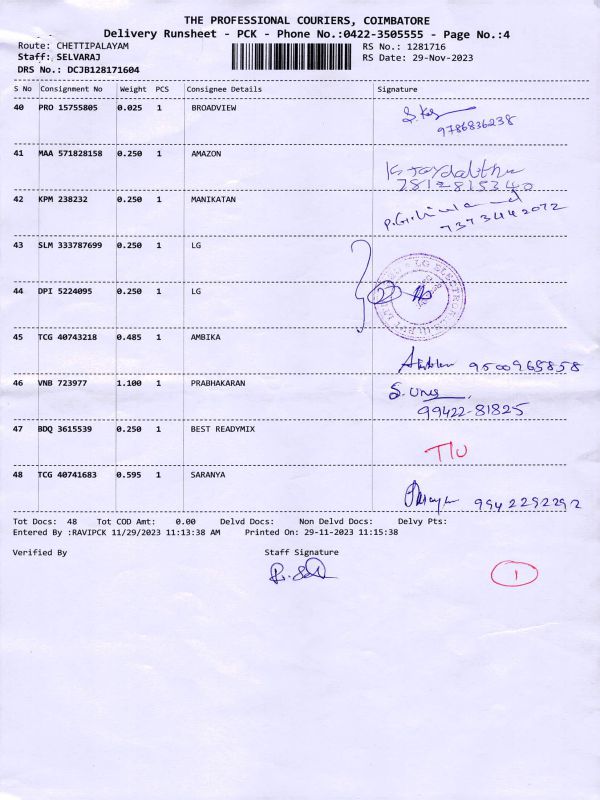 THE PROFESSIONAL COURIERS, COIMBATORE
Delivery Runsheet - PCK - Phone No.:0422-3505555 - Page No.:4
Route: CHETTIPALAYAM RS No.: 1281716
Staff: SELVARAJ RS Date: 29-Nov-2023
DRS No.: DCJB128171604
S No Consignment No Weight PCS Consignee Details Signature
40 PRO 15755805 0.025 1 BROADVIEW
9786836238
41 MAA 571828158 0.250 1 AMAZON
7812815340
42 KPM 238232 0.250 1 MANIKATAN
7373442072
43 SLM 333787699 0.250 1 LG
LG ELECTRONICS
44 DPI 5224095 0.250 1 LG
45 TCG 40743218 0.485 1 AMBIKA
9500965858
46 VNB 723977 1.100 1 PRABHAKARAN
99422-81825
47 BDQ 3615539 0.250 1 BEST READYMIX
48 TCG 40741683 0.595 1 SARANYA
9942292292
Tot Docs: 48 Tot COD Amt: 0.00 Delvd Docs: Non Delvd Docs: Delvy Pts:
Entered By :RAVIPCK 11/29/2023 11:13:38 AM Printed On: 29-11-2023 11:15:38
Verified By Staff Signature
1